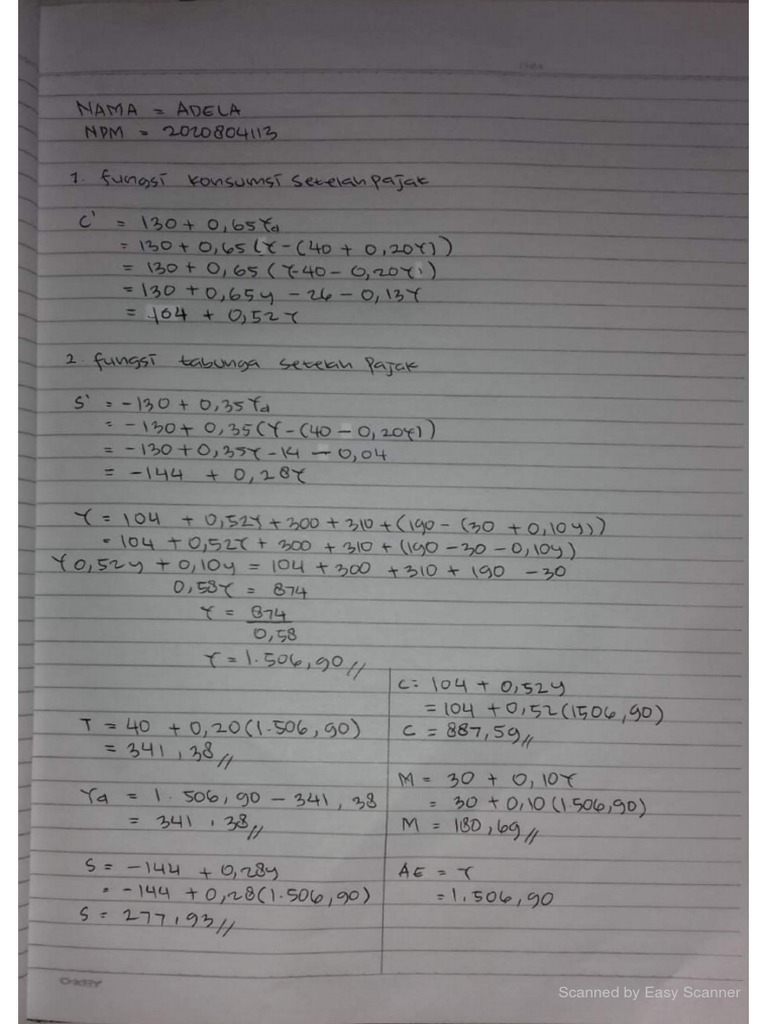 NAMA = ADELA
NPM = 2020804113
1. fungsi konsumsi setelah pajak
C' = 130 + 0,65Yd
= 130 + 0,65 (Y-(40 + 0,20Y))
= 130 + 0,65 (Y-40 - 0,20Y)
= 130 + 0,65y - 26 - 0,13Y
= 104 + 0,52Y
2. fungsi tabunga setelah pajak
S' = -130 + 0,35 Yd
= -130 + 0,35 (Y-(40 - 0,20Y))
= -130 + 0,35Y - 14 - 0,04
= -144 + 0,28Y
Y = 104 + 0,52Y + 300 + 310 + (190 - (30 + 0,10y))
= 104 + 0,52Y + 300 + 310 + (190 - 30 - 0,10y)
Y 0,52y + 0,10y = 104 + 300 + 310 + 190 - 30
0,58Y = 874
Y = 874
0,58
Y = 1.506,90//
T = 40 + 0,20 (1.506,90)
= 341,38//
Yd = 1.506,90 - 341,38
= 341,38//
S = -144 + 0,28y
= -144 + 0,28 (1.506,90)
S = 277,93//
C = 104 + 0,52y
= 104 + 0,52 (1506,90)
C = 887,59//
M = 30 + 0,10Y
= 30 + 0,10 (1.506,90)
M = 180,69//
AE = Y
= 1.506,90
OKEY
Scanned by Easy Scanner